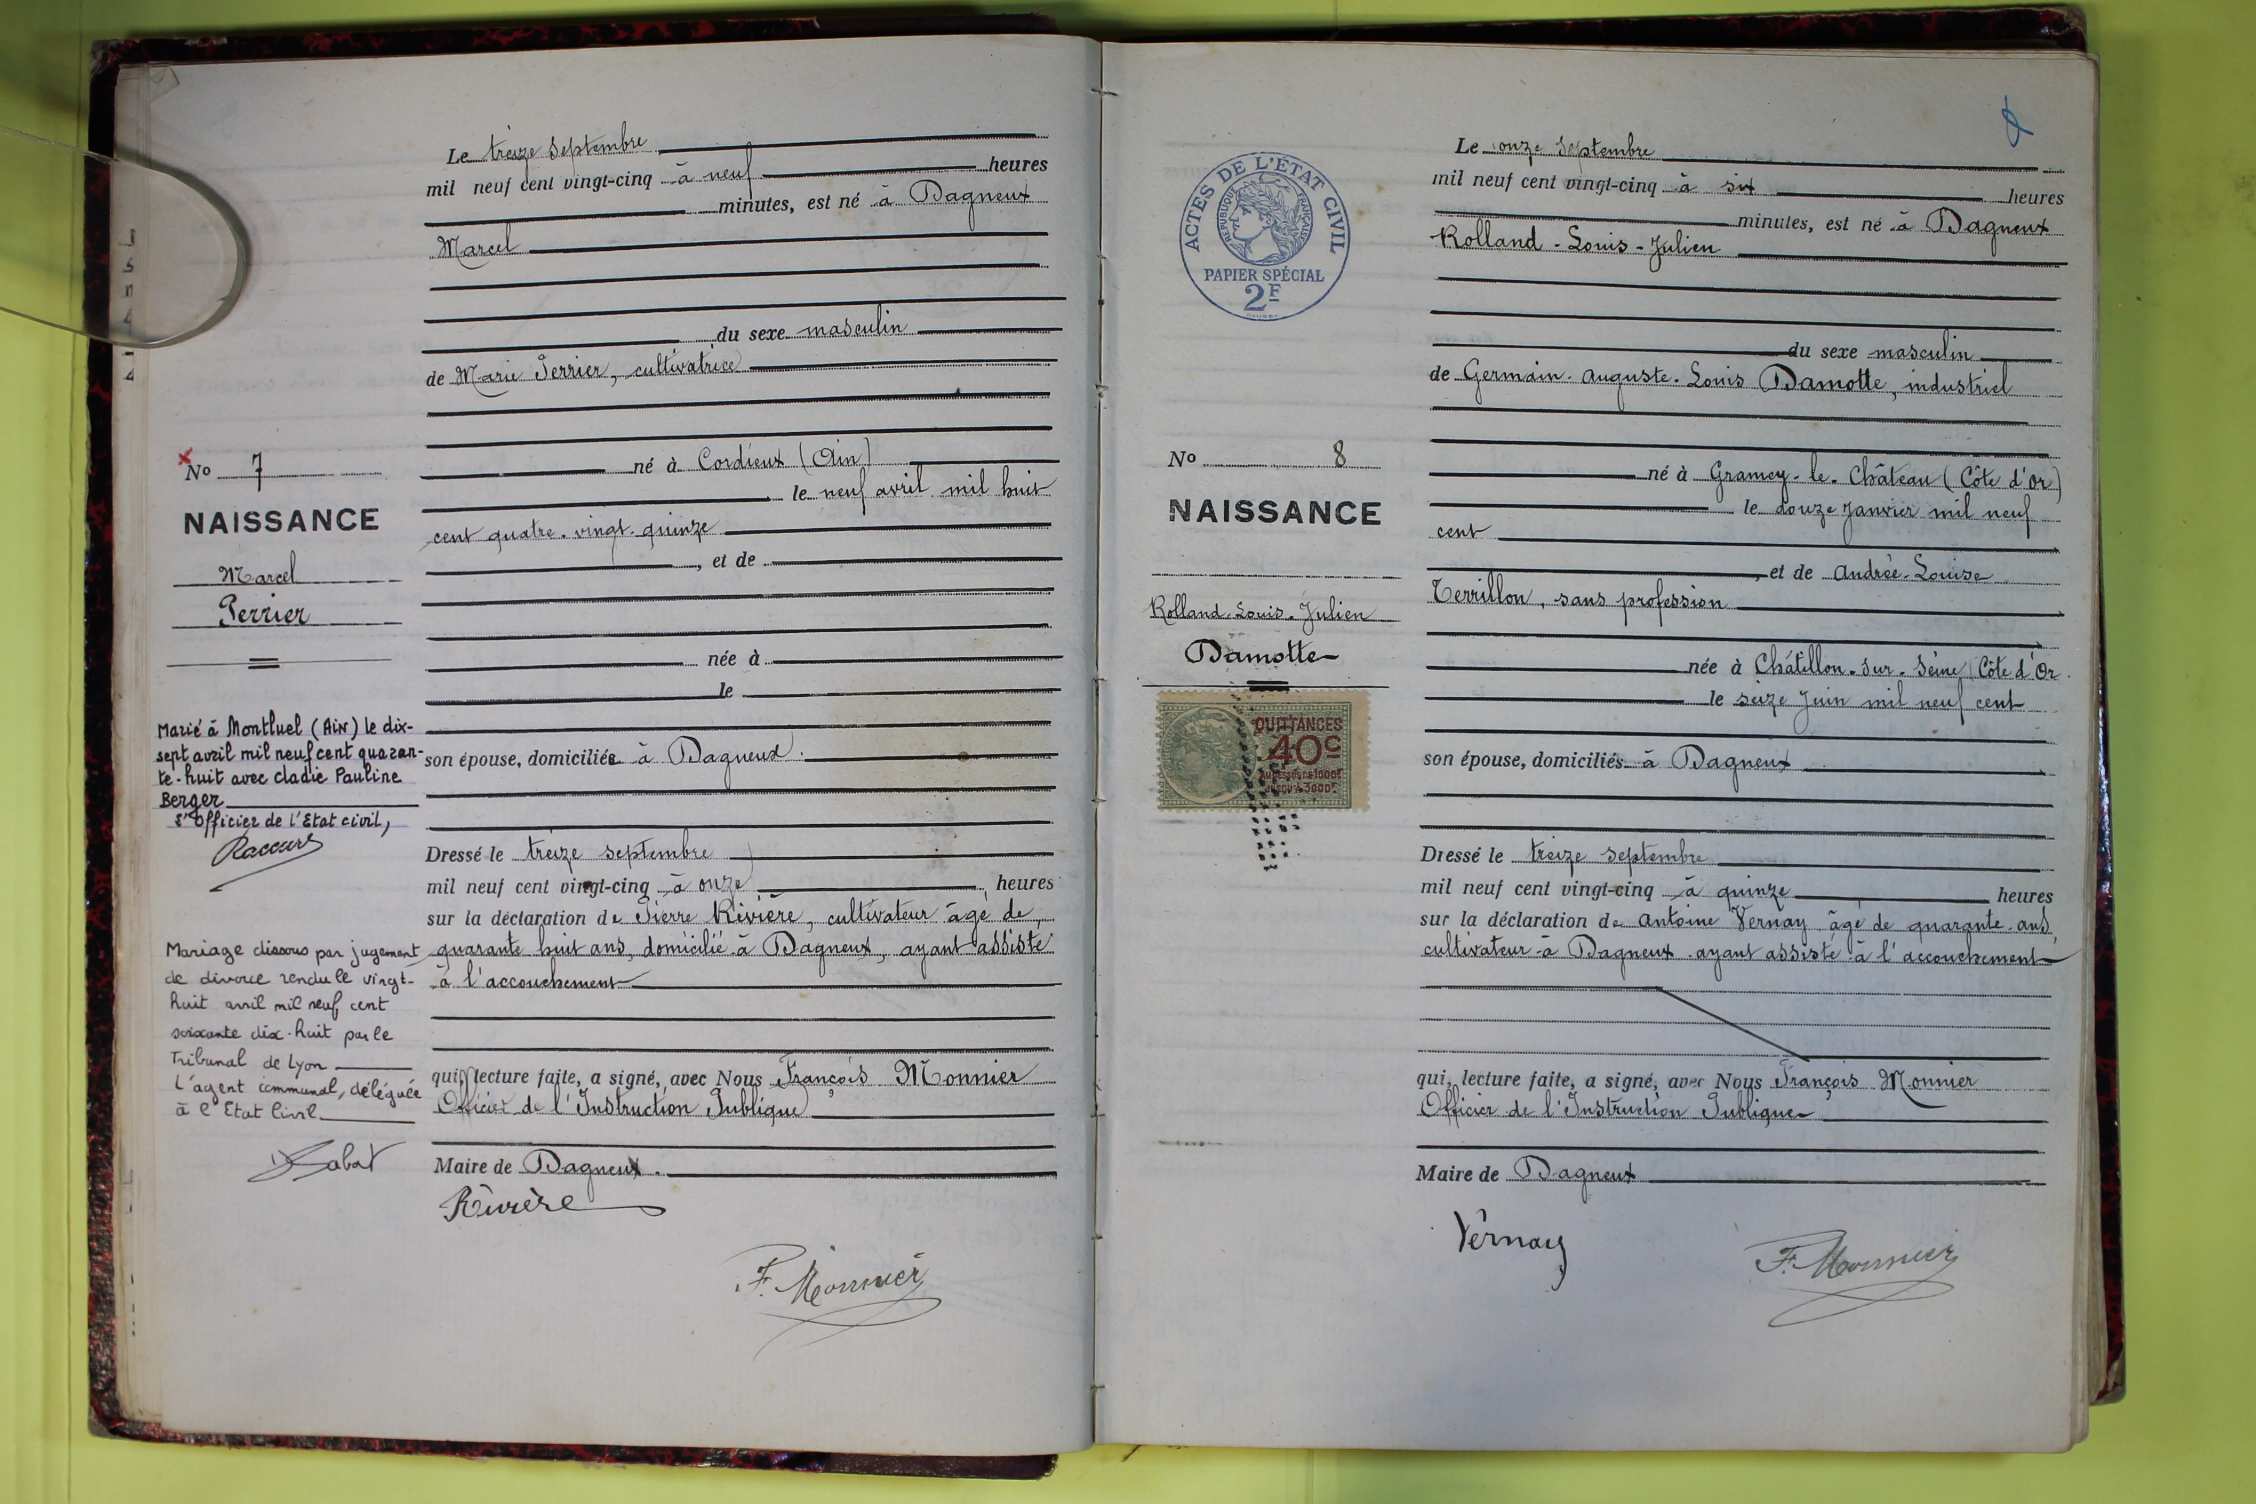 Le treize septembre
mil neuf cent vingt-cinq à neuf heures
minutes, est né à Dagneux
Marcel
du sexe masculin
de Marie Perrier, cultivatrice
né à Cordieux (Ain)
le neuf avril mil huit
cent quatre-vingt-quinze
, et de
née à
le
son épouse, domiciliés à Dagneux.
Dressé le treize septembre
mil neuf cent vingt-cinq à onze heures
sur la déclaration de Pierre Rivière, cultivateur âgé de
quarante huit ans, domicilié à Dagneux, ayant assisté
à l'accouchement
qui, lecture faite, a signé, avec Nous François Monnier
Officier de l'Instruction Publique,
Maire de Dagneux.
Rivière
F. Monnier
No 7
NAISSANCE
Marcel
Perrier
Marié à Montluel (Ain) le dix-
sept avril mil neuf cent quaran-
te-huit avec Cladie Pauline
Berger
L'officier de l'Etat civil,
Mariage dissous par jugement
de divorce rendu le vingt-
huit avril mil neuf cent
soixante dix-huit par le
Tribunal de Lyon
L'agent communal, déléguée
à l'Etat Civil
Sabat
8
Le onze septembre
mil neuf cent vingt-cinq à six heures
minutes, est né à Dagneux
Rolland-Louis-Julien
du sexe masculin
de Germain-Auguste-Louis Damotte, industriel
né à Grancey-le-Château (Côte d'Or)
le douze Janvier mil neuf
cent
, et de Andrée-Louise
Terrillon, sans profession
née à Châtillon-sur-Seine (Côte d'Or
le seize Juin mil neuf cent
son épouse, domiciliés à Dagneux
Dressé le treize septembre
mil neuf cent vingt-cinq à quinze heures
sur la déclaration de Antoine Vernay âgé de quarante ans,
cultivateur à Dagneux ayant assisté à l'accouchement
qui, lecture faite, a signé, avec Nous François Monnier
Officier de l'Instruction Publique,
Maire de Dagneux
Vernay
F. Monnier
ACTES DE L'ÉTAT CIVIL
RÉPUBLIQUE FRANÇAISE
PAPIER SPÉCIAL
2F
No 8
NAISSANCE
Rolland-Louis-Julien
Damotte
QUITTANCES
40c